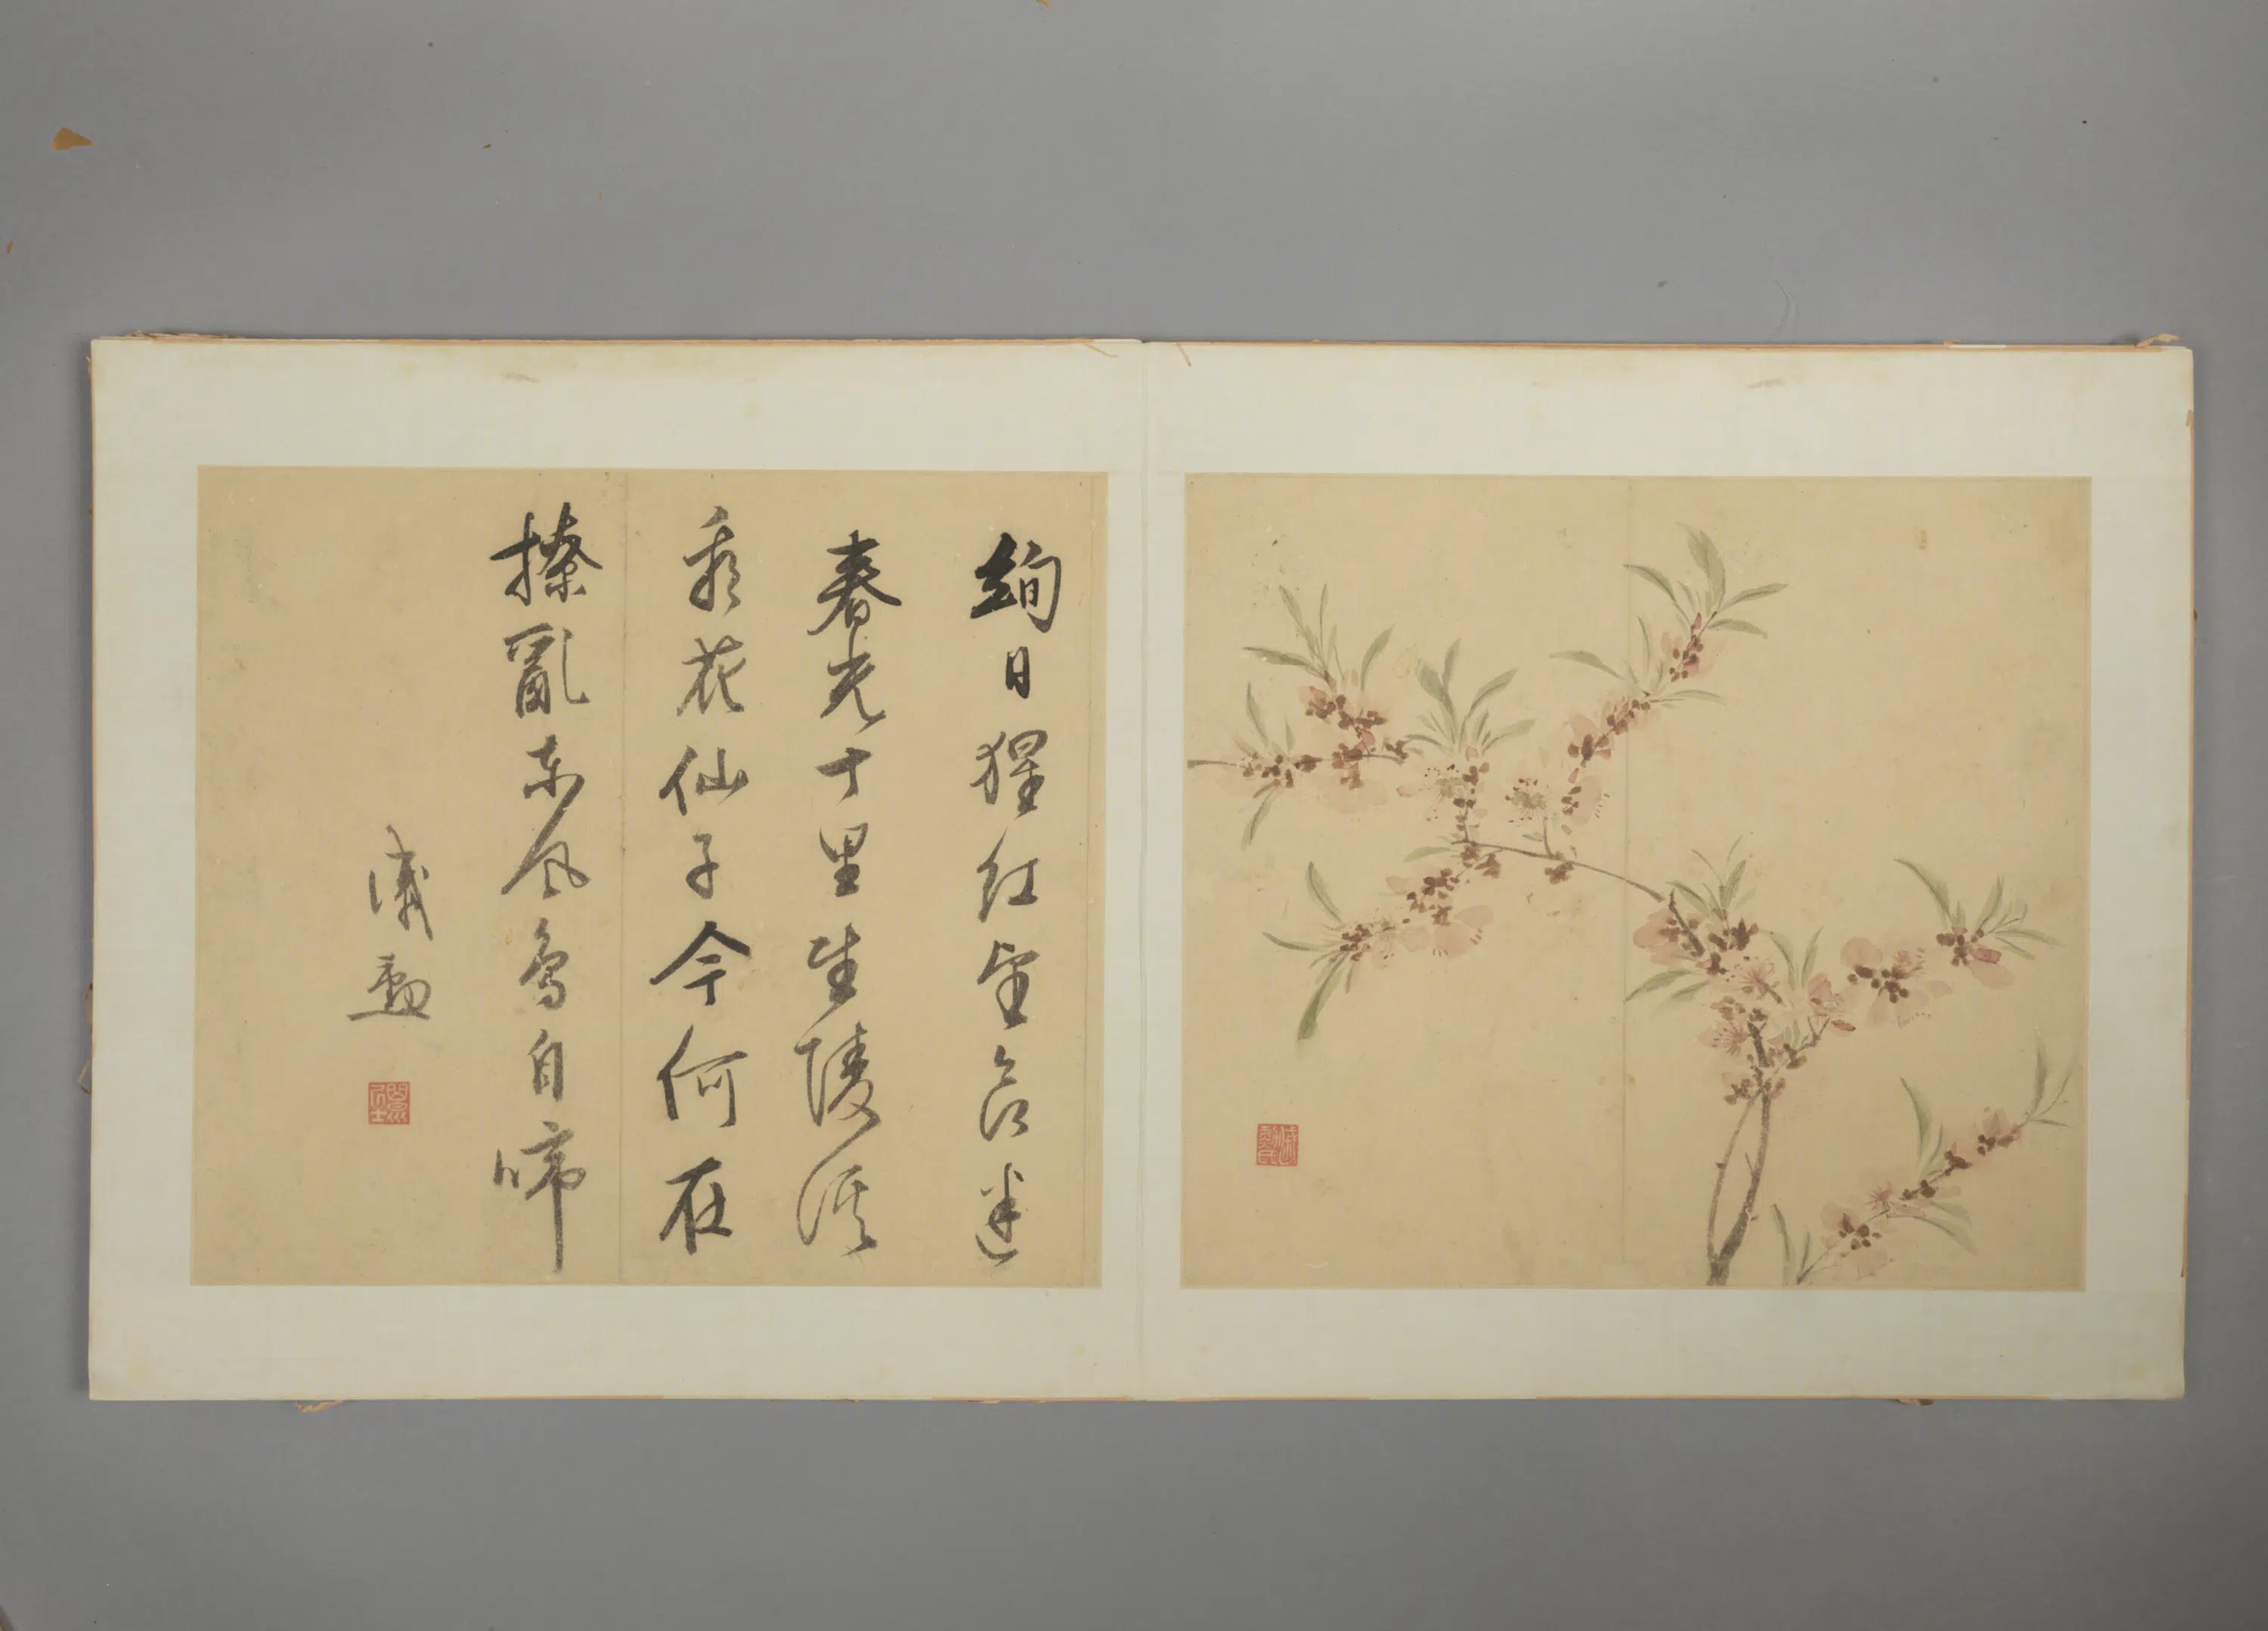 絢日猩紅望欲迷
春光十里武陵溪
看花仙子今何在
撩亂東風鳥自啼